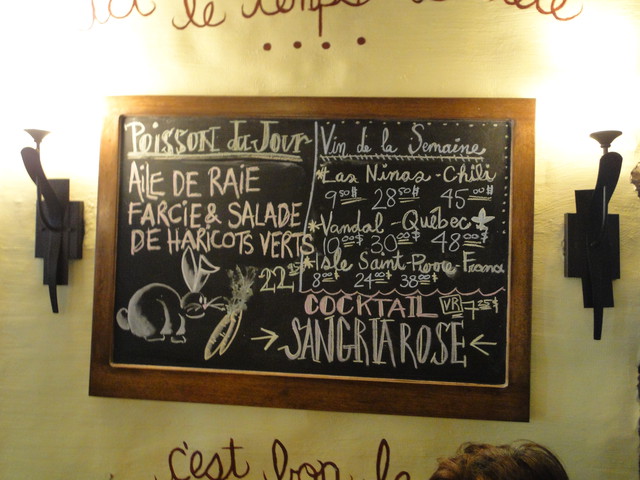 ici le temps
Poisson du Jour
AiLE DE RAIE
FARCIE & SALADE
DE HARICOTS VERTS
22
Vin de la Semaine
*Las Ninas - Chili
9.50$ 28.50$ 45.00$
*Vandal - Québec
10.00$ 30.00$ 48.00$
*Isle Saint-Pierre - France
8.00$ 24.00$ 38.00$
COCKTAIL VR
→ SANGRIA ROSÉ ←
c'est bon la